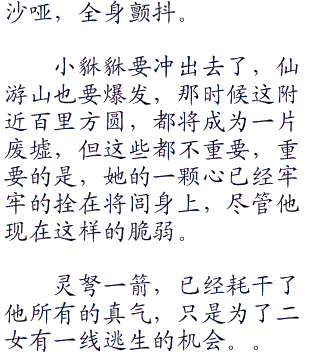 沙哑，全身颤抖。
小貅貅要冲出去了，仙
游山也要爆发，那时候这附
近百里方圆，都将成为一片
废墟，但这些都不重要，重
要的是，她的一颗心已经牢
牢的拴在将闾身上，尽管他
现在这样的脆弱。
灵弩一箭，已经耗干了
他所有的真气，只是为了二
女有一线逃生的机会。。